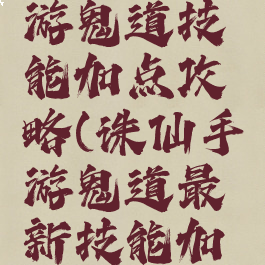 游鬼道技
能加点攻
略(诛仙手
游鬼道最
新技能加